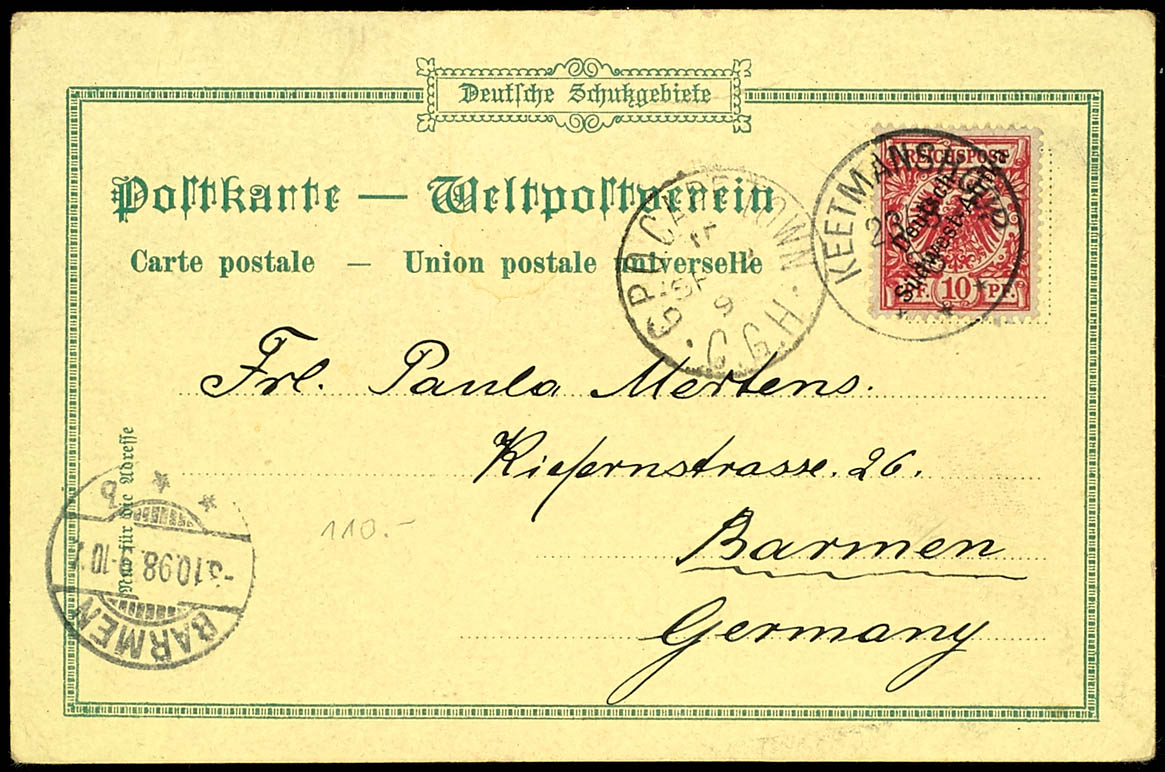 Deutsche Schutzgebiete
Postkarte — Weltpostverein
Carte postale — Union postale universelle
REICHSPOST
Deutsch-
Südwest-Afrika
10 PF.
KEETMANSHOOP
G.P.O. CAPE TOWN
SP
C.G.H.
Frl. Paula Mertens.
Kiefernstrasse. 26.
Barmen
Germany
Nur für die Adresse
110.-
BARMEN
-3.10.98. 9-10
b